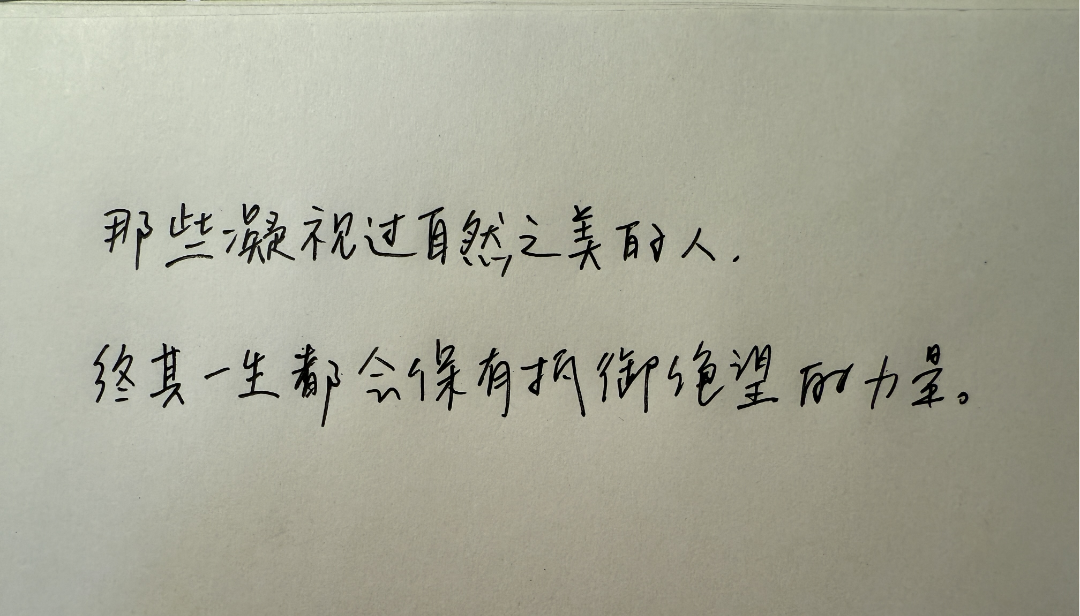 那些凝视过自然之美的人.
终其一生都会保有抵御绝望的力量。